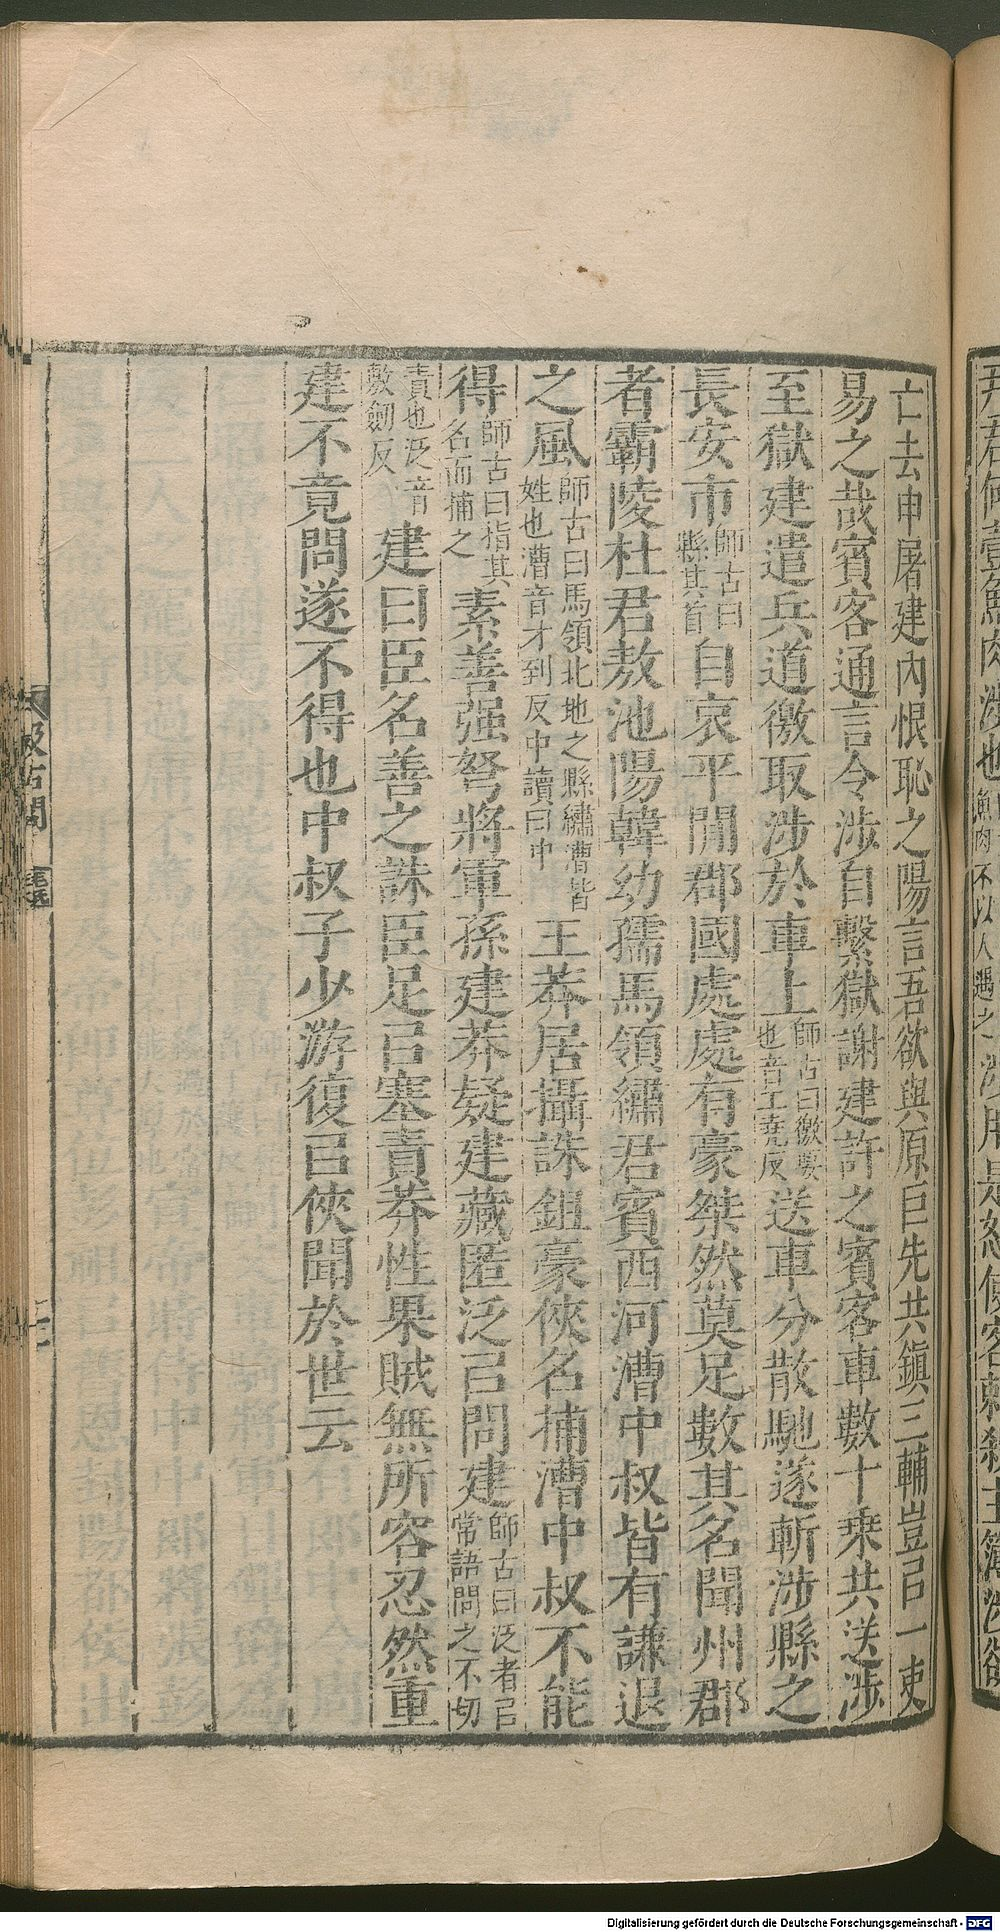 亡去申屠建內恨恥之陽言吾欲與原巨先共鎮三輔豈㠯一吏
易之哉賓客通言令涉自繫獄謝建許之賓客車數十乗共送涉
至獄建遣兵道徼取涉於車上師古曰徼要也音工堯反送車分散馳遂斬涉縣之
長安市師古曰縣其首自哀平間郡國處處有豪桀然莫足數其名聞州郡
者霸陵杜君敖池陽韓幼孺馬領繡君賓西河漕中叔皆有謙退
之風師古曰馬領北地之縣繡漕皆姓也漕音才到反中讀曰中王莽居攝誅鉏豪俠名捕漕中叔不能
得師古曰指其名而捕之素善强弩將軍孫建莽疑建藏匿泛㠯問建師古曰泛者㠯常語問之不切
責也泛音敷劒反建曰臣名善之誅臣足㠯塞責莽性果賊無所容忍然重
建不竟問遂不得也中叔子少游復㠯俠聞於世云
汲古閣
君何壹魚肉涉也魚肉不以人遇之涉用是怒使客刺殺主簿涉欲
Digitalisierung gefördert durch die Deutsche Forschungsgemeinschaft - DFG